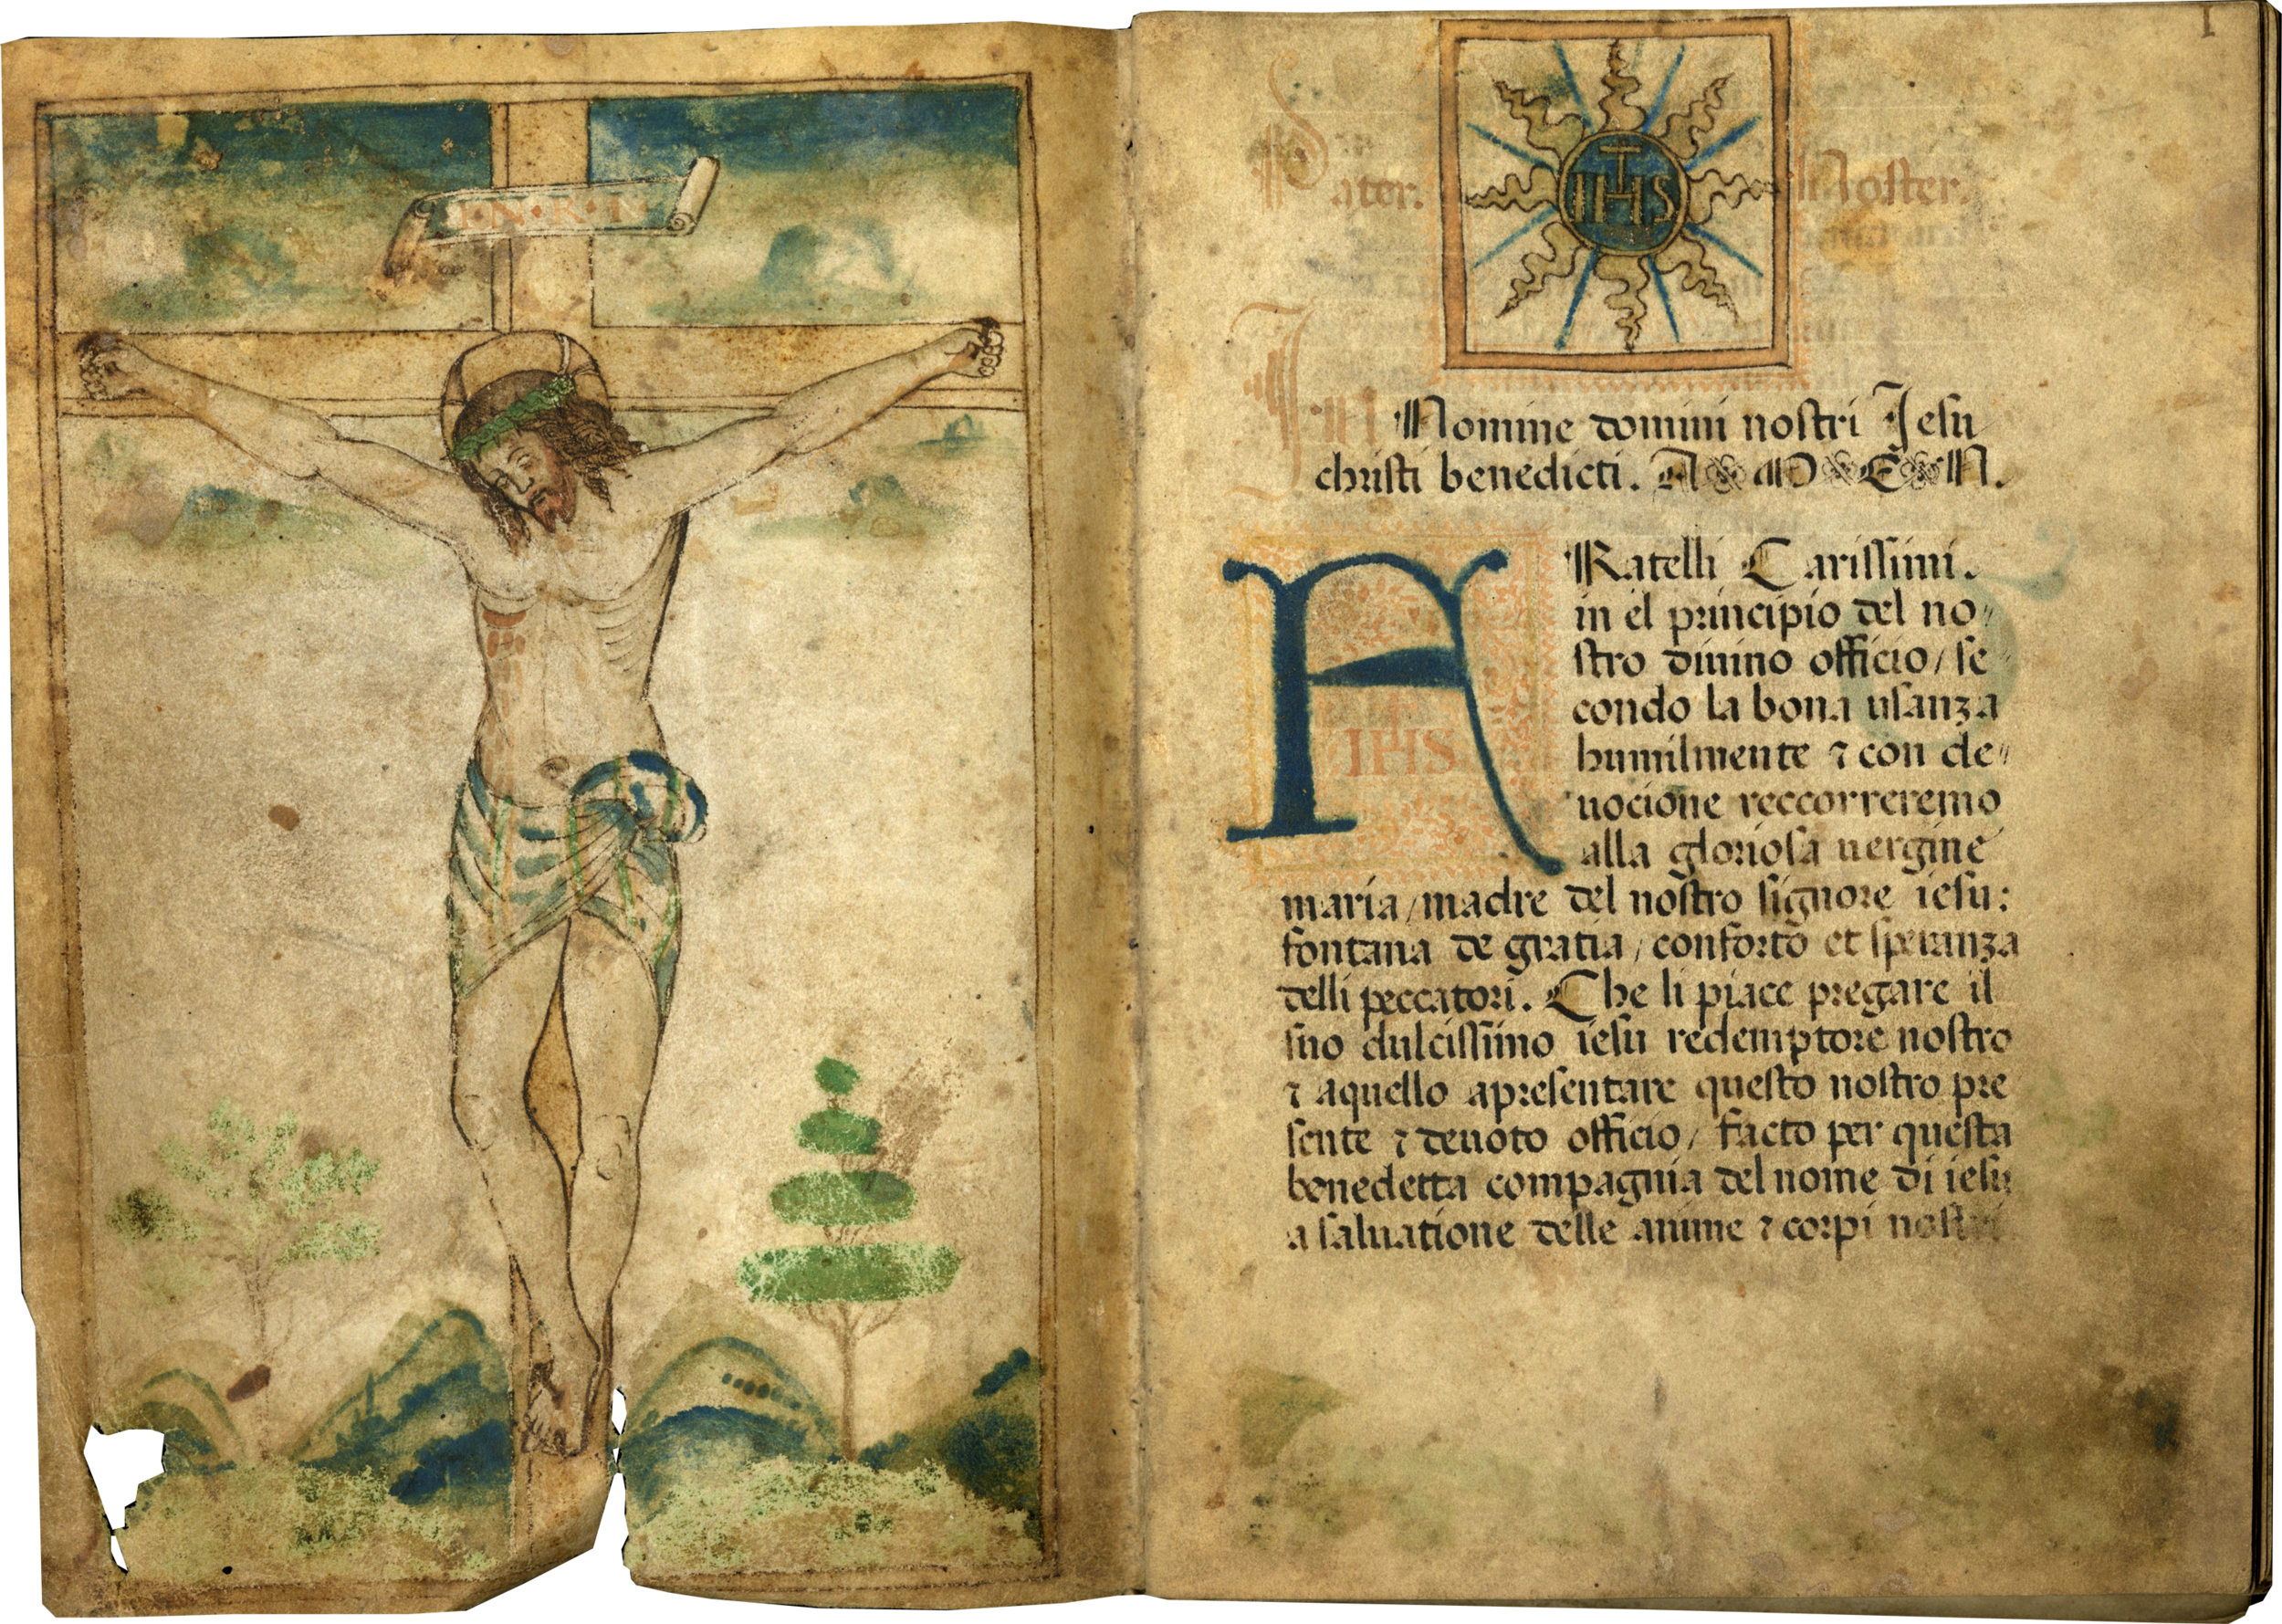 I·N·R·I
1
Pater. IHS Noster.
In Nomine domini nostri Jesu
christi benedicti. AMEN.
FRatelli Carissimi.
in el principio del no〃
stro diuino officio/ se〃
condo la bona usanza
humilmente ⁊ con de〃
uocione reccorreremo
alla gloriosa uergine
IHS
maria/madre del nostro signore iesu:
fontana de gratia/ conforto et speranza
delli peccatori. Che li piace pregare il
suo dulcissimo iesu redemptore nostro
⁊ aquello apresentare questo nostro pre
sente ⁊ deuoto officio/ facto per questa
benedetta compagnia del nome di iesu
a saluatione delle anime ⁊ corpi nostri